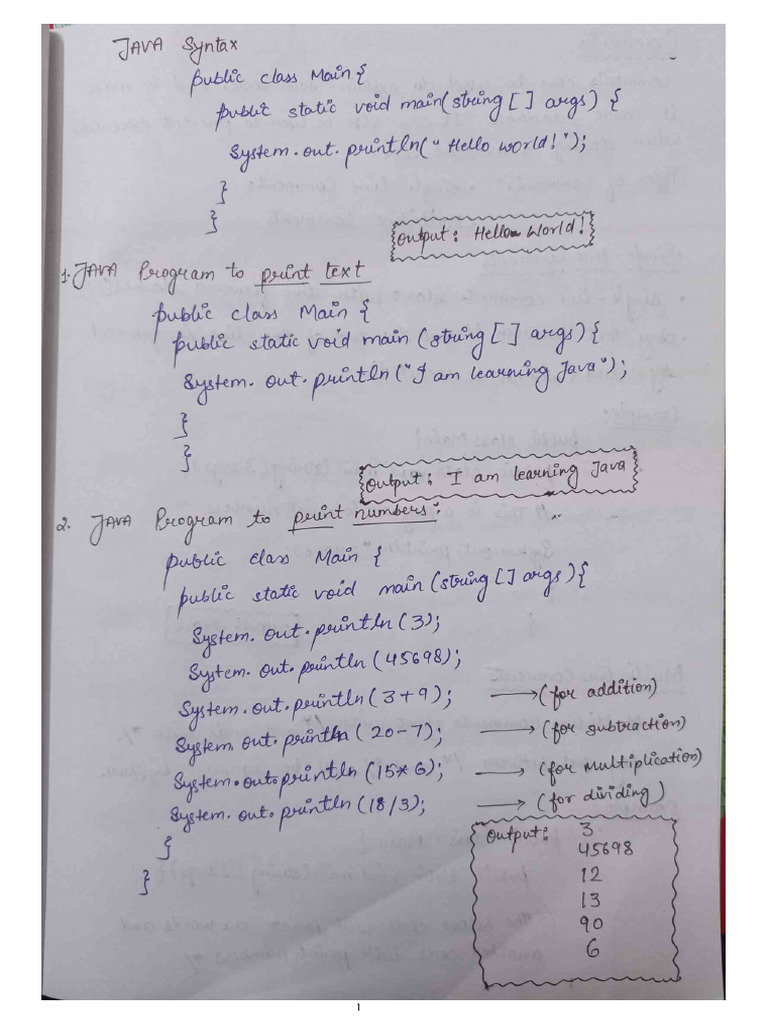 JAVA Syntax
public class Main {
public static void main(string [ ] args) {
System.out.println("Hello world!");
}
}
Output: Hello World!
1. JAVA Program to print text
public class Main {
public static void main (string [ ] args) {
System.out.println("I am learning Java");
}
}
Output: I am learning Java
2. JAVA Program to print numbers:
public class Main {
public static void main (string [ ] args) {
System.out.println(3);
System.out.println(45698);
System.out.println(3+9); → (for addition)
System.out.println(20-7); → (for subtraction)
System.out.println(15*6); → (for Multiplication)
System.out.println(18/3); → (for dividing)
}
}
Output: 3
45698
12
13
90
6
1